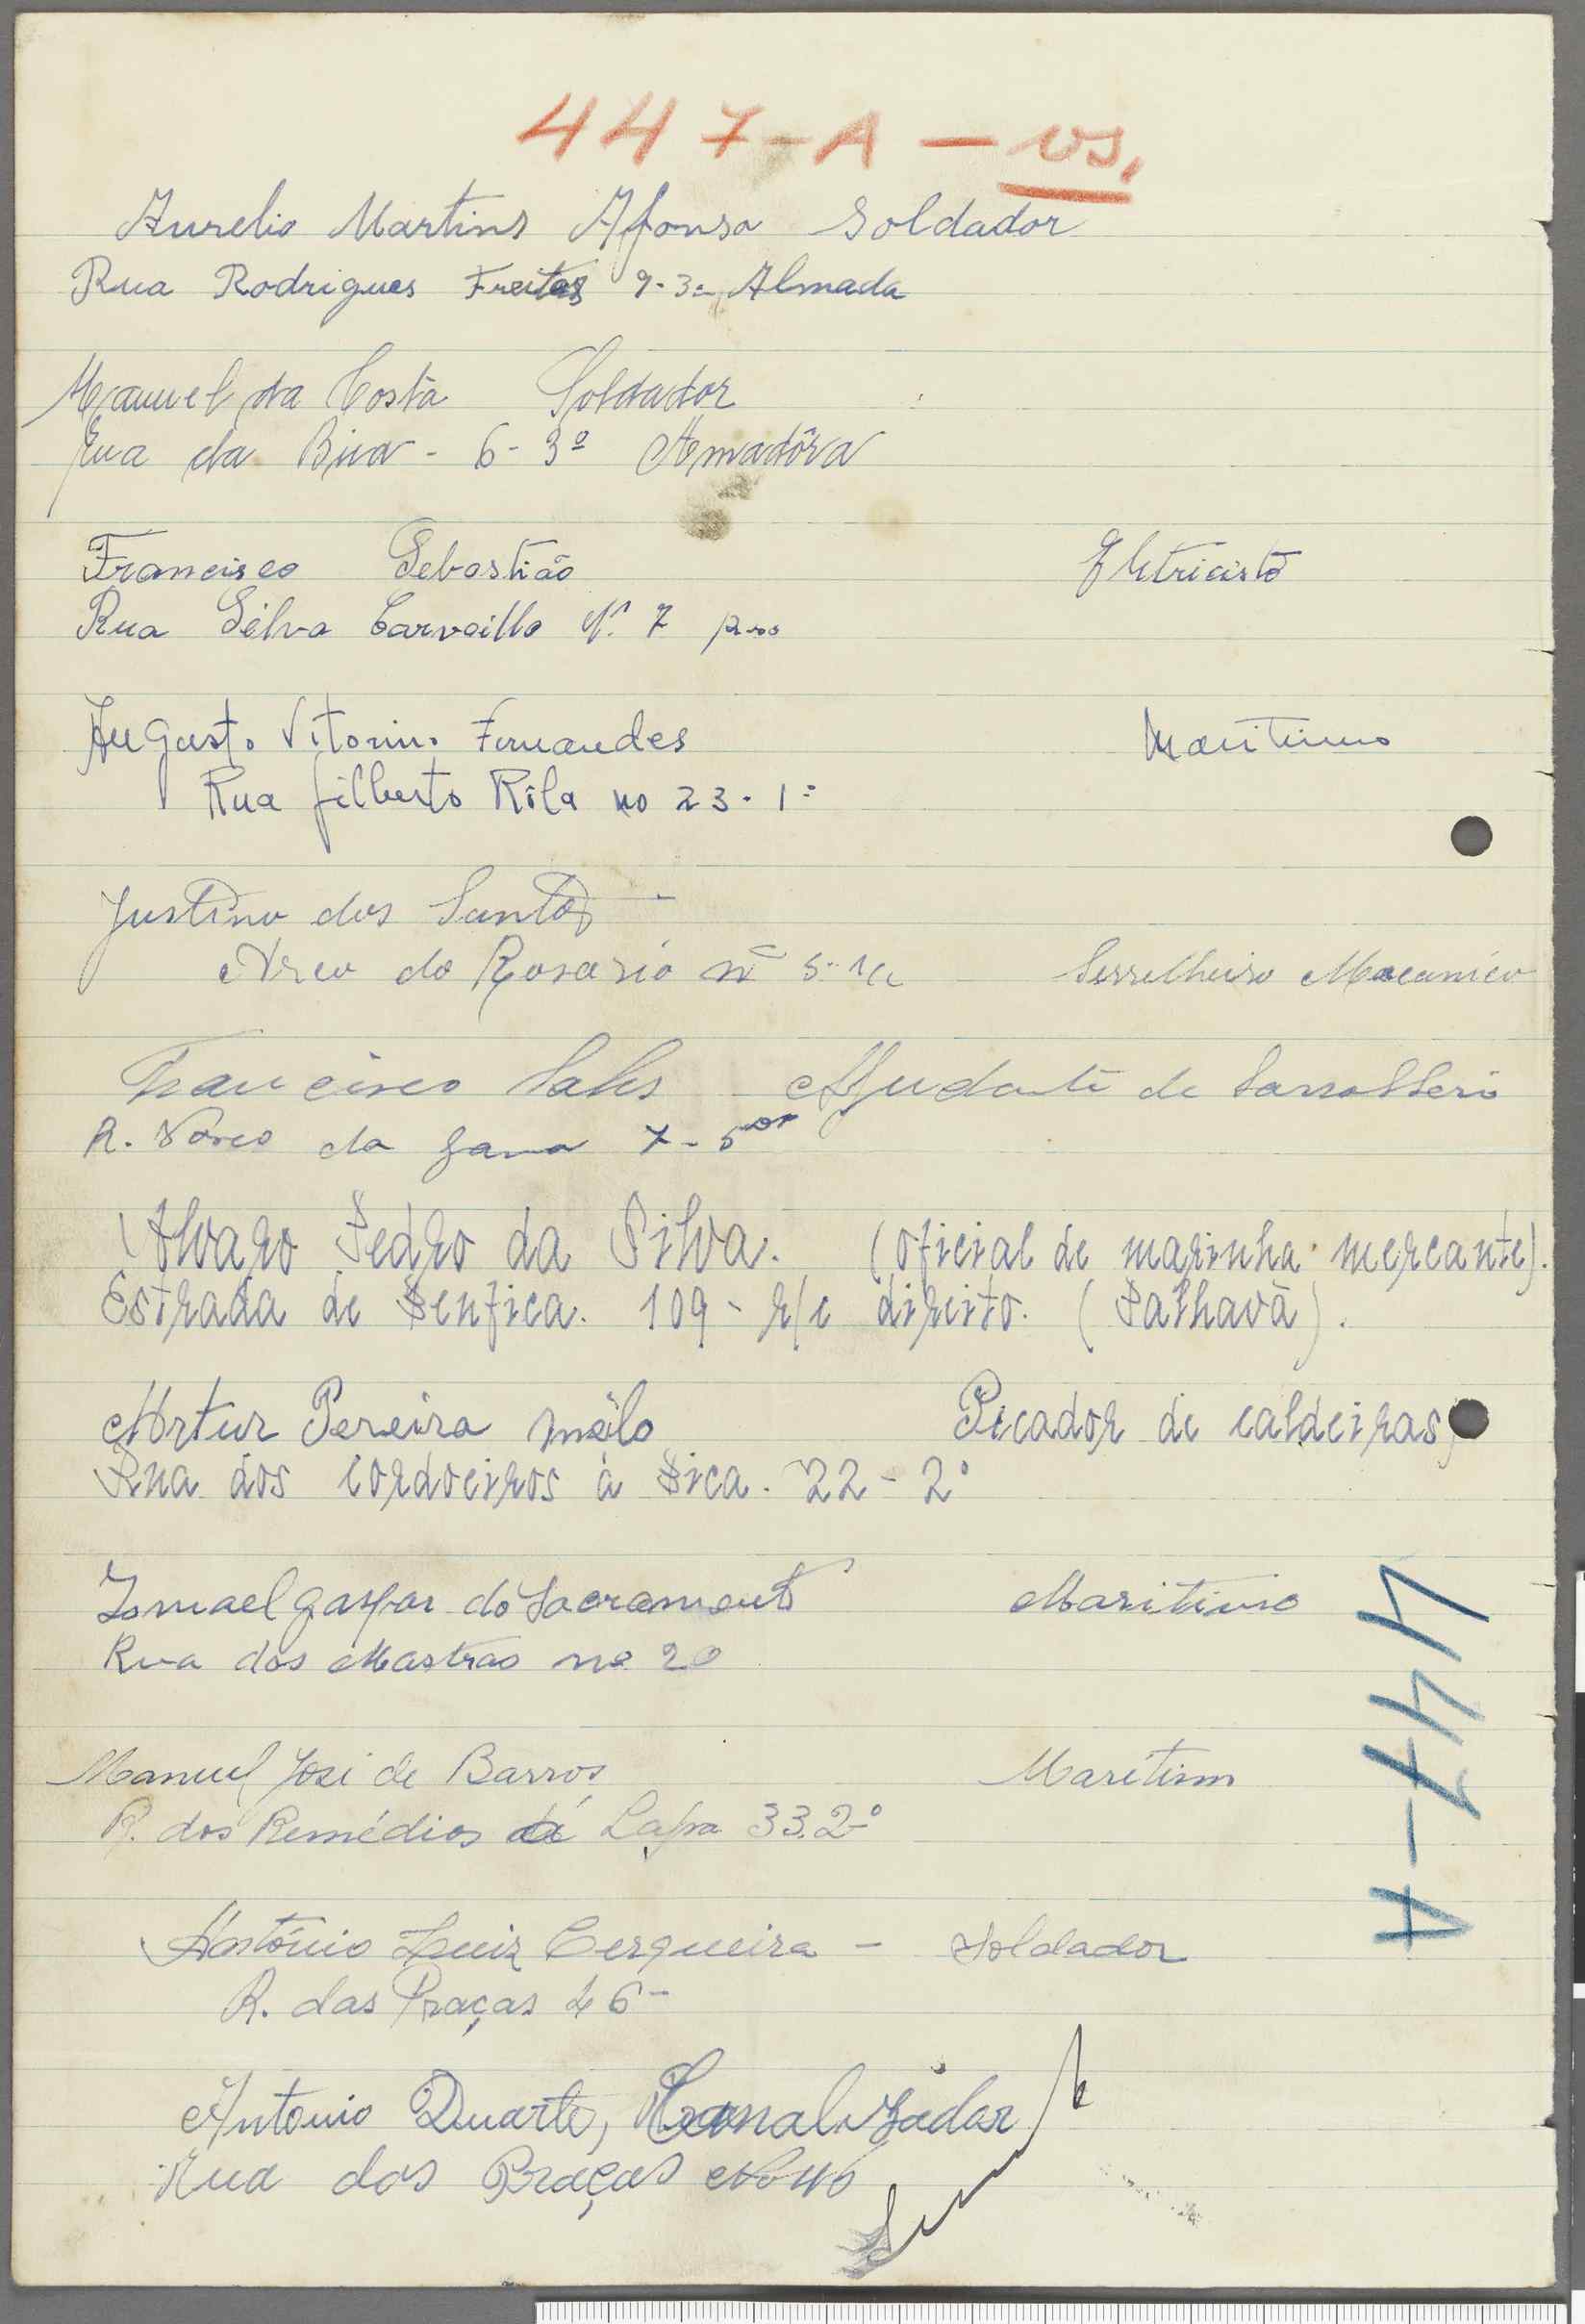 447-A - vs.
Aurelio Martins Afonso Soldador
Rua Rodrigues Freitas 9-3º Almada
Manuel da Costa Soldador
Rua da Bica - 6-3º Amadôra
Francisco Sebastião Eletricista
Rua Silva Carvailho Nº 7
Augusto Vitorino Fernandes Maritimo
Rua Gilberto Rôla no 23-1º
Justino dos Santos
Arco do Rosario nº 5- Serrelheiro Macanico
Francisco Sales Ajudante de
R. Vasco da Gama 7-5
Alvaro Pedro da Silva. (Oficial de marinha mercante).
Estrada de Benfica. 109- r/c direito. (Palhavã).
Artur Pereira mélo Picador de caldeiras
Rua dos cordoeiros à Bica. 22-2º
Ismael gaspar do Sacramento Maritimo
Rua dos Mastros nº 20
Manuel José de Barros Maritimo
R. dos Remédios á Lapa 33.2º
António Luiz Cerqueira - Soldador
R. das Praças 46-
Antonio Duarte, Canalizador
Rua das Praças No 46
447-A